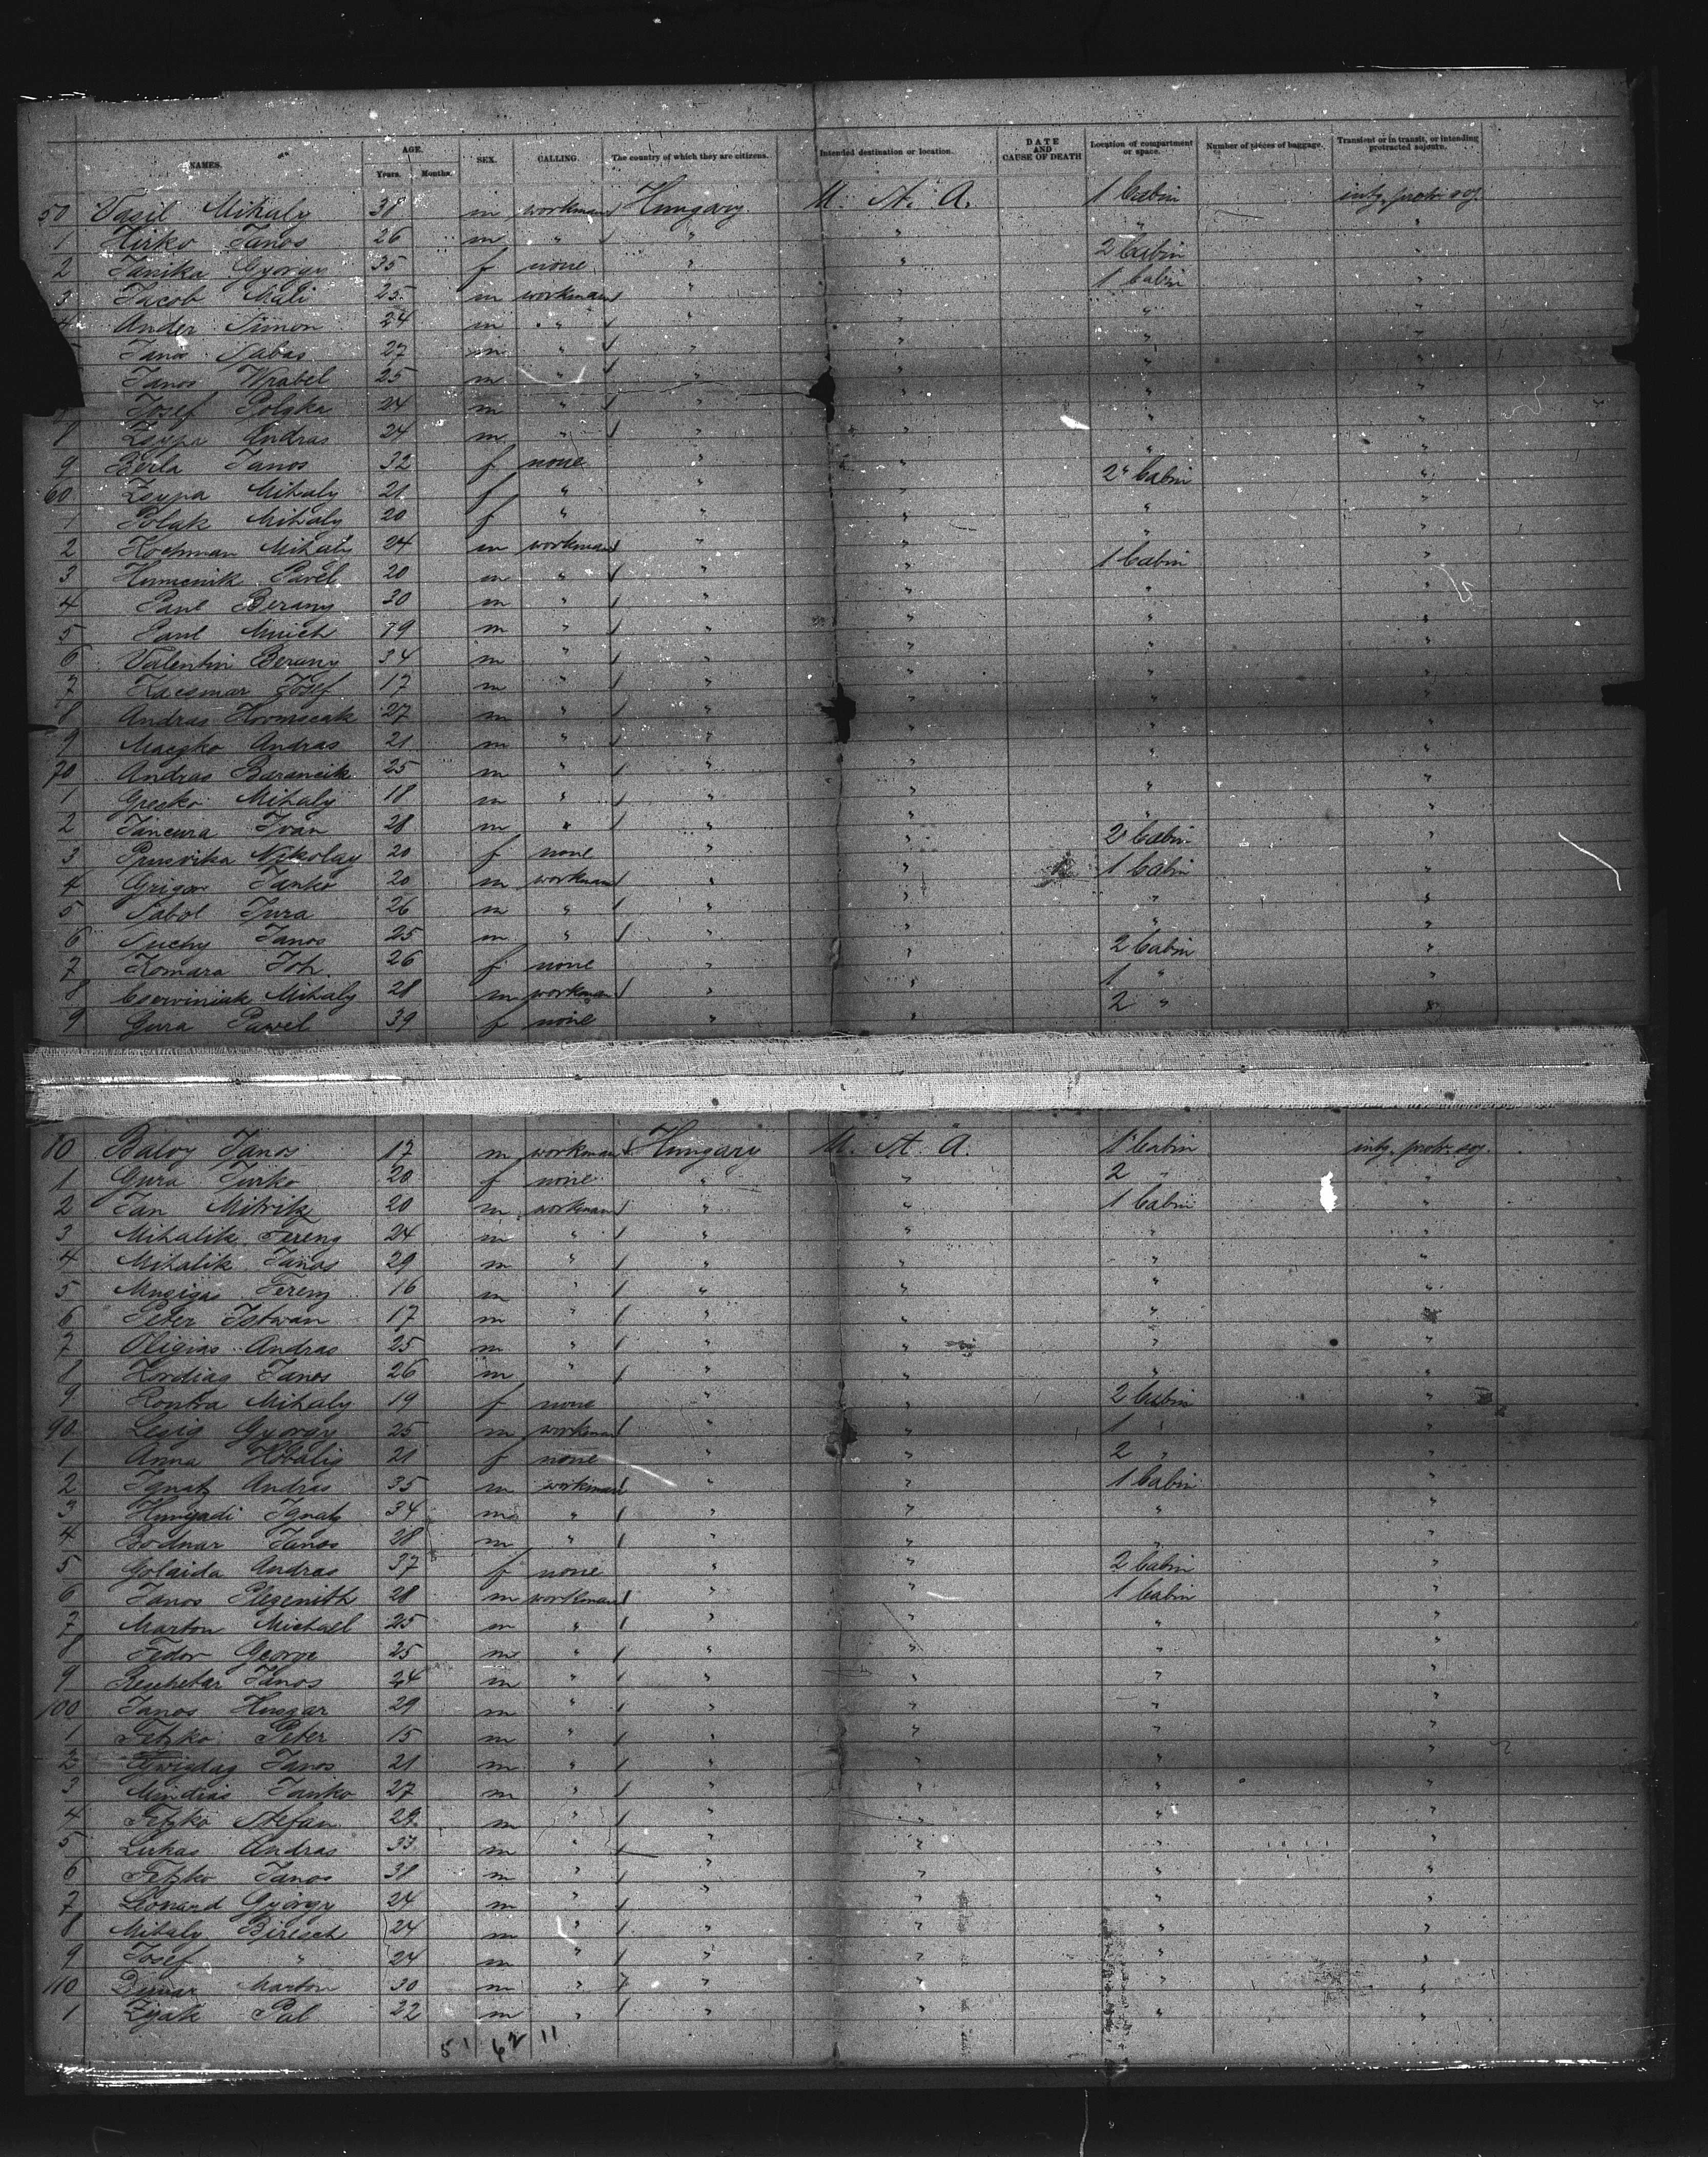 NAMES. AGE. Years. Months. SEX. CALLING. The country of which they are citizens. Intended destination or location. DATE AND CAUSE OF DEATH Location of compartment or space. Number of pieces of baggage. Transient or in transit, or intending protracted sojourn.
50 Vasil Mihaly 38 m workman Hungary U. St. A. 1 Cabin intg. protr. soj.
1 Hirko Janos 26 m " " " " "
2 Janika György 35 f none " " 2 Cabin "
3 Jacob Mali 25 m workman " " 1 Cabin "
4 Ander Simon 24 m " " " " "
Janos Sabas 27 m " " " " "
Janos Wrabel 25 m " " " " "
Josef Polyka 24 m " " " " "
8 Zsypa Andras 24 m " " " " "
9 Berla Janos 32 f none " " 2 Cabin "
60 Zsypa Mihaly 21 f " " " " "
1 Polak Mihaly 20 f " " " " "
2 Hochman Mihaly 24 m workman " " 1 Cabin "
3 Humenik Pavel 20 m " " " " "
4 Paul Berany 30 m " " " " "
5 Paul Mnich 19 m " " " " "
6 Valentin Berany 34 m " " " " "
7 Kacsmar Josef 17 m " " " " "
8 Andras Hormscak 27 m " " " " "
9 Maczko Andras 21 m " " " " "
70 Andras Barancik 25 m " " " " "
1 Grecko Mihaly 18 m " " " " "
2 Jancura Ivan 28 m " " " " "
3 Prusvika Nykolay 20 f none " " 2 Cabin "
4 Grigor Janko 20 m workman " " 1 Cabin "
5 Sabol Jura 26 m " " " " "
6 Suchy Janos 25 m " " " " "
7 Komara Joh. 26 f none " " 2 Cabin "
8 Cserviniak Mihaly 28 m workman " " 1 " "
9 Gura Pawel 39 f none " " 2 " "
80 Baloy Janos 17 m workman Hungary U. St. A. 1 Cabin intg. protr. soj.
1 Gura Jurko 20 f none " " 2 " "
2 Jan Mitrik 20 m workman " " 1 Cabin "
3 Mihalik Fereng 24 m " " " " "
4 Mihalik Janos 29 m " " " " "
5 Fereng 16 m " " " " "
6 Peter Istwan 17 m " " " " "
7 Oligias Andras 25 m " " " " "
8 Kordiag Janos 26 m " " " " "
9 Kontra Mihaly 19 f none " " 2 Cabin "
90 Lesig György 25 m workman " " 1 " "
1 Anna Hobalig 21 f none " " 2 " "
2 Ignatz Andras 35 m workman " " 1 Cabin "
3 Hunyadi Ignatz 34 m " " " " "
4 Bodnar Janos 28 m " " " " "
5 Golaida Andras 37 f none " " 2 Cabin "
6 Janos Plegenith 28 m workman " " 1 Cabin "
7 Marton Michael 25 m " " " " "
8 Fedor George 25 m " " " " "
9 Reschetar Janos 24 m " " " " "
100 Janos Husgar 29 m " " " " "
1 Fetzko Peter 15 m " " " " "
2 Janos 21 m " " " " "
3 Mindias Janko 27 m " " " " "
4 Fetzko Stefan 29 m " " " " "
5 Lukas Andras 33 m " " " " "
6 Fetzko Janos 38 m " " " " "
7 Leonard György 24 m " " " " "
8 Mihaly Biresch 24 m " " " " "
9 Josef " 24 m " " " " "
110 Marton 30 m " " " " "
1 Zyak Pal 22 m " " " " "
51 62 11